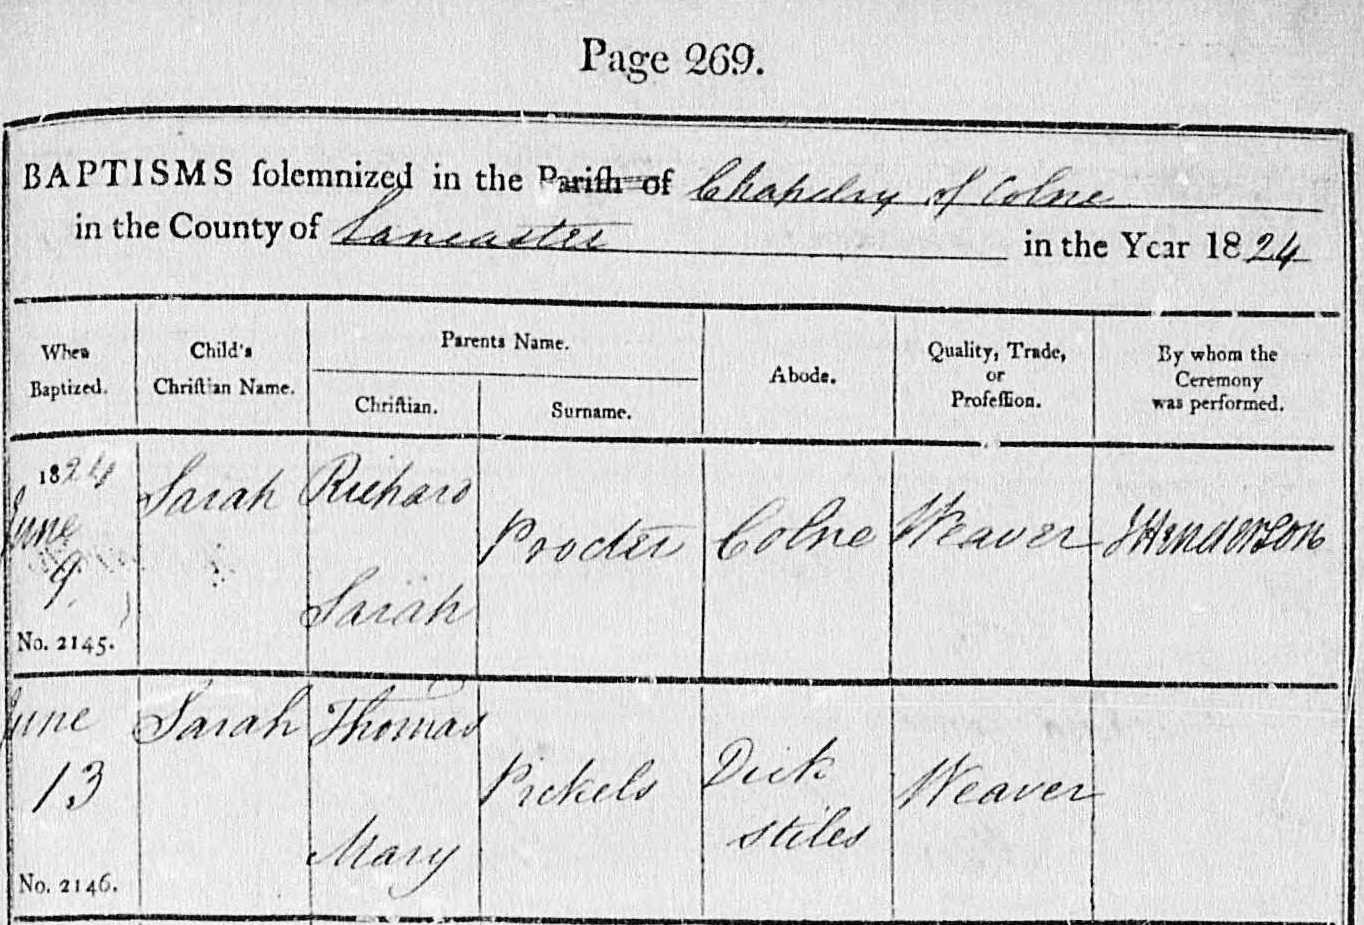 Page 269.
BAPTISMS solemnized in the Parish of Chapelry of Colne
in the County of Lancaster in the Year 1824
When Baptized.
Child's Christian Name.
Parents Name.
Christian.
Surname.
Abode.
Quality, Trade, or Profession.
By whom the Ceremony was performed.
1824
June
9
No. 2145.
Sarah
Richard
Sarah
Procter
Colne
Weaver
J Henderson
June
13
No. 2146.
Sarah
Thomas
Mary
Pickels
Dick
Stiles
Weaver